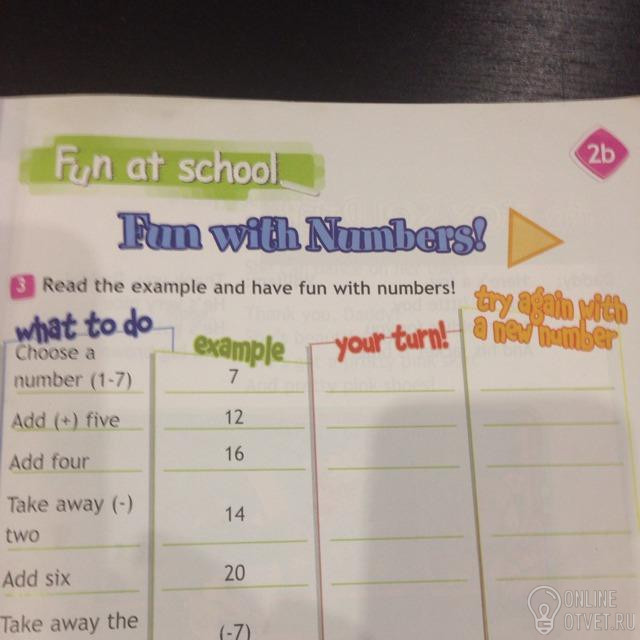 Fun at school
2b
Fun with Numbers!
3 Read the example and have fun with numbers!
what to do
example
your turn!
try again with
a new number
Choose a
number (1-7)
7
Add (+) five
12
Add four
16
Take away (-)
two
14
Add six
20
Take away the
(-7)
ONLINE
OTVET.RU